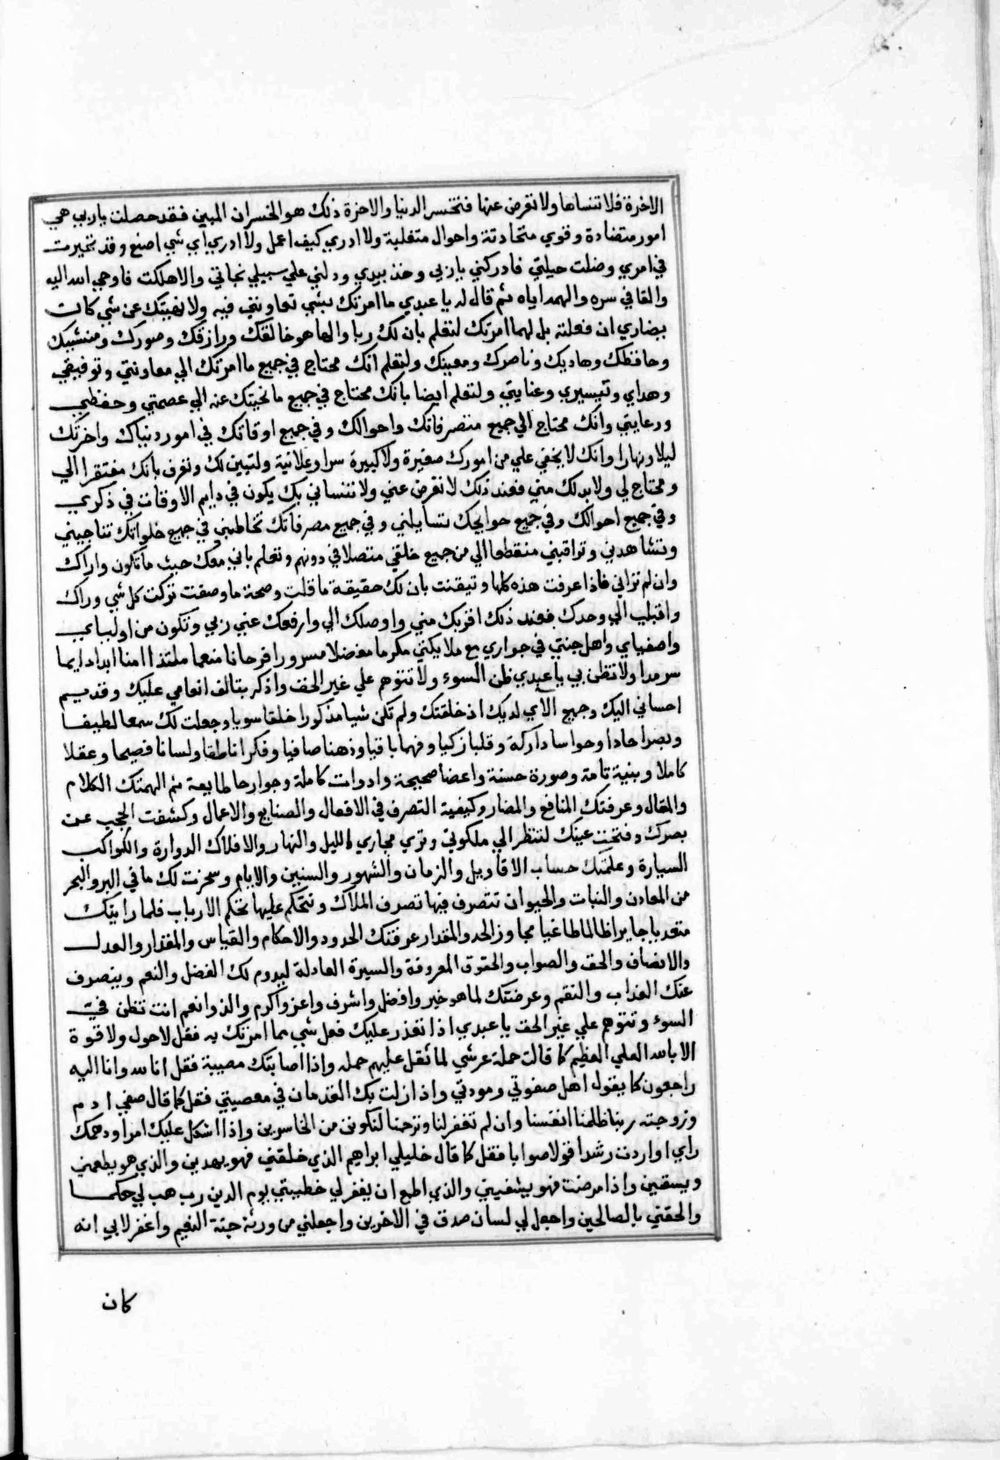 الاخرة فلا تنساها ولا تعرض عنها فتخسر الدنيا والاخرة ذلك هو الخسران المبين فقد حصلت يا ربي هي
امور متضادة وقوي متجاذبة واحوال متقلبة ولا ادري كيف اعمل ولا ادري اي شي اصنع وقد تحيرت
في امري وضلت حيلتي فادركني يا ربي وخذ بيدي ودلني علي سبيلي نجاتي والا هلكت فاوحي الله اليه
والقا في سره والهمه اياه ثم قال له يا عبدي ما امرتك بشي تعاونني فيه ولا نهيتك عن شي كان
يضاري ان فعلته بل انما امرتك لتعلم بان لك ربا والها هو خالقك ورازقك ومصورك ومنشيك
وحافظك وهاديك وناصرك ومعينك ولتعلم انك محتاج في جميع ما امرتك الي معاونتي وتوفيقي
وهداي وتيسيري وعنايتي ولتعلم ايضا بانك محتاج في جميع ما نهيتك عنه الي عصمتي وحفظي
ورعايتي وانك محتاج الي جميع متصرفاتك واحوالك وفي جميع اوقاتك في امور دنياك واخرتك
ليلا ونهارا وانك لا يخفي علي من امورك صغيرة ولا كبيرة سرا وعلانية وليتبين لك وتعرف بانك مفتقرا الي
ومحتاج لي ولا بد لك مني فعند ذلك لا تعرض عني ولا تنساني بك يكون في دايم الاوقات في ذكري
وفي جميع احوالك وفي جميع حوايجك تسايلني وفي جميع مصرفاتك تخاطبني وفي جميع خلواتك تناجيني
وتشاهدني وتراقبني منقطعا الي من جميع خلقي متصلا في دونهم وتعلم باني معك حيث ما تكون واراك
وان لم تراني فاذا عرفت هذه كلها وتيقنت بان لك حقيقة ما قلت وصحة ما وصفت تركت كل شي وراك
واقبلت الي وحدك فعند ذلك اقربك مني واوصلك الي وارفعك عني ربي وتكون من اوليايي
واصفياي واهل جنتي في جواري مع ملايكتي مكرما مفضلا مسرورا فرحانا منعما ملتذا امنا ابدا دايما
سرمدا ولا تظن بي يا عبدي ظن السوء ولا تتوهم علي غير الحق واذكر بتالف انعامي عليك وقديم
احساني اليك وجميع الآي لديك اذ خلقتك ولم تكن شيا مذكورا خلقا سويا وجعلت لك سمعا لطيفا
وبصرا حادا وحواسا داركة وقلبا زكيا وفهما باقيا وذهنا صافيا وفكرا ناطقا ولسانا فصيحا وعقلا
كاملا وبنية تامة وصورة حسنة واعضا صحيحة وادوات كاملة وجوارحا طايعة ثم الهمتك الكلام
والمقال وعرفتك المنافع والمضار وكيفية التصرف في الافعال والصنايع والاعمال وكشفت الحجب عن
بصرك وفتحت عينك لتنظر الي ملكوتي وتري مجاري الليل والنهار والافلاك الدوارة والكواكب
السيارة وعلمتك حساب الاقاديل والزمان والشهور والسنين والايام وسخرت لك ما في البر والبحر
من المعادن والنبات والحيوان تتصرف فيها تصرف الملاك وتتحكم عليها تحكم الارباب فلما رايتك
متعديا جايرا ظالما طاغيا مجاوز الحد والمقدار عرفتك الحدود والاحكام والقياس والمقدار والعدل
والانصاف والحق والصواب والحقوق المعروفة والسيرة العادلة ليدوم لك الفضل والنعم وينصرف
عنك العذاب والنقم وعرضتك لما هو خير وافضل واشرف واعز واكرم والذ وانعم انت تظن في
السوء وتتوهم علي غير الحق يا عبدي اذا تعذر عليك فعل شي مما امرتك به فقل لا حول ولا قوة
الا بالله العلي العظيم كما قالت حملة عرشي لما ثقل عليهم حمله واذا اصابتك مصيبة فقل انا لله وانا اليه
راجعون كما يقول اهل صفوتي ومودتي واذا زلت بك القدمان في معصيتي فقل كما قال صفي ادم
وزوجته ربنا ظلمنا انفسنا وان لم تغفر لنا وترحمنا لنكونن من الخاسرين واذا اشكل عليك امرا وهمك
راي او اردت رشدا قولا صوابا فقل كما قال خليلي ابراهيم الذي خلقني فهو يهدين والذي هو يطعمني
ويسقين واذا مرضت فهو يشفيني والذي اطمع ان يغفر لي خطيتي يوم الدين رب هب لي حكما
والحقني بالصالحين واجعل لي لسان صدق في الاخرين واجعلني من ورثة جنة النعيم واغفر لابي انه
كان